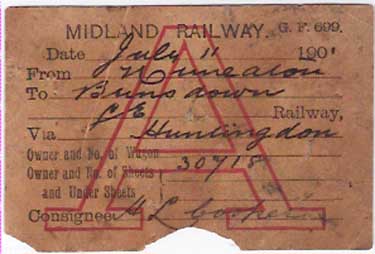 MIDLAND RAILWAY. G. F. 699.
Date July 11 1901
From Nuneaton
To Brimsdown
G E Railway,
Via Huntingdon
Owner and No. of Wagon 30718
Owner and No. of Sheets
and Under Sheets
Consignee H L
A